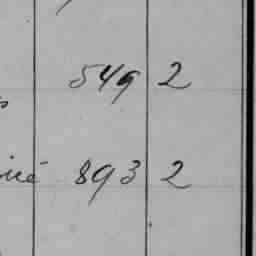 549 2
893 2